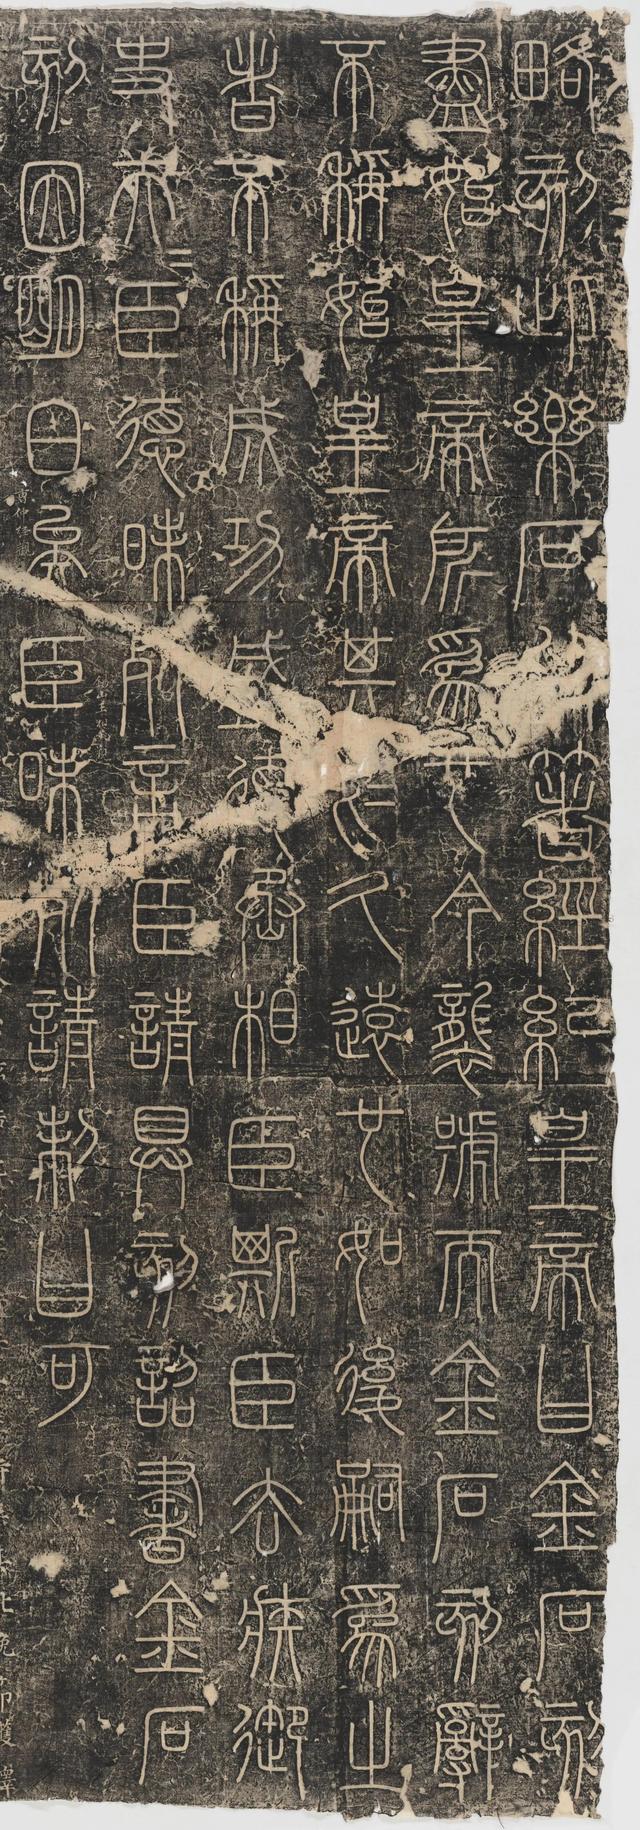 略刻此樂石箸經紀皇帝曰金石刻
盡始皇帝所爲也今襲號而金石刻辭
不稱始皇帝其於久遠也如後嗣爲之
者不稱成功盛德丞相臣斯臣去疾御
史夫=臣德昧死言臣請具刻詔書金石
刻因明白矣臣昧死請制曰可